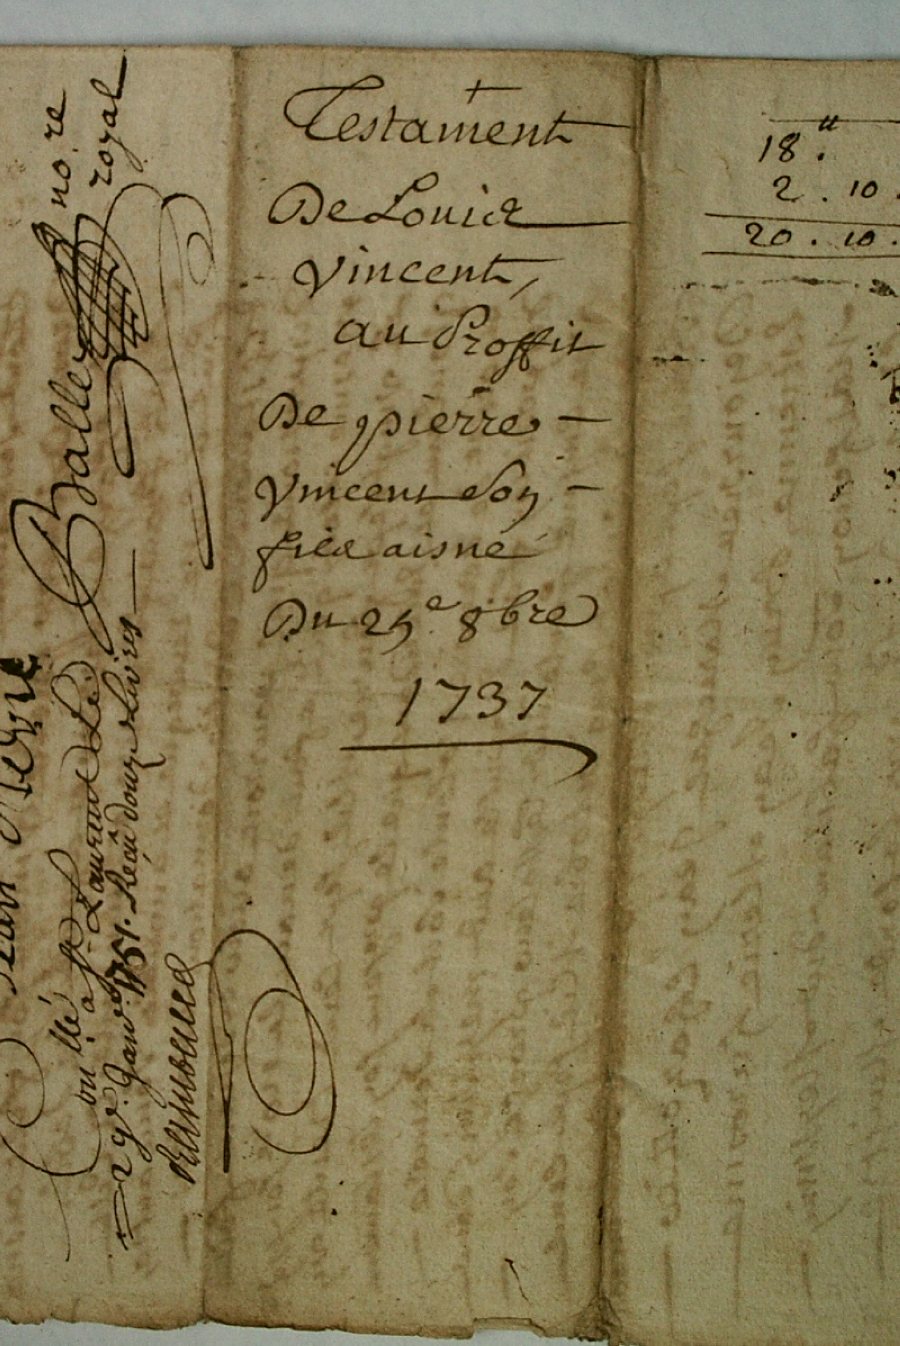 Testament
De Louis
Vincent,
au Proffit
De pierre
Vincent Son
fils aisné
Du 25e 8bre
1737
18.tt
2 . 10 .
20 . 10 .
Balle no.re
royal
Con llé à St Laurent Le
29e. Janv. 1751. Reçû douze Livres